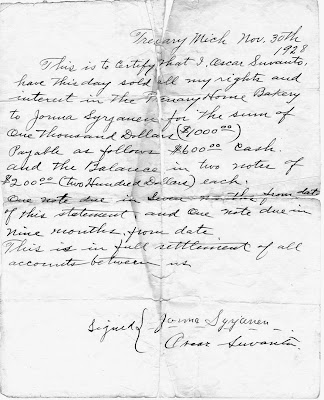 Trenary Mich Nov. 30th
1928
This is to Certify that I, Oscar Suvanto,
have this day sold all my rights and
interest in the Trenary Home Bakery
to Jorma Syrjanen for the sum of
One Thousand Dollars ($1000 00)
Payable as follows $600 00 Cash.
and the Balance in two notes of
$200 00 (Two Hundred Dollars) each.
One note due in Seven from date
of this statement and One note due in
nine months from date
This is in full settlement of all
accounts between us
Signed { Jorma Syrjanen
Oscar Suvanto.